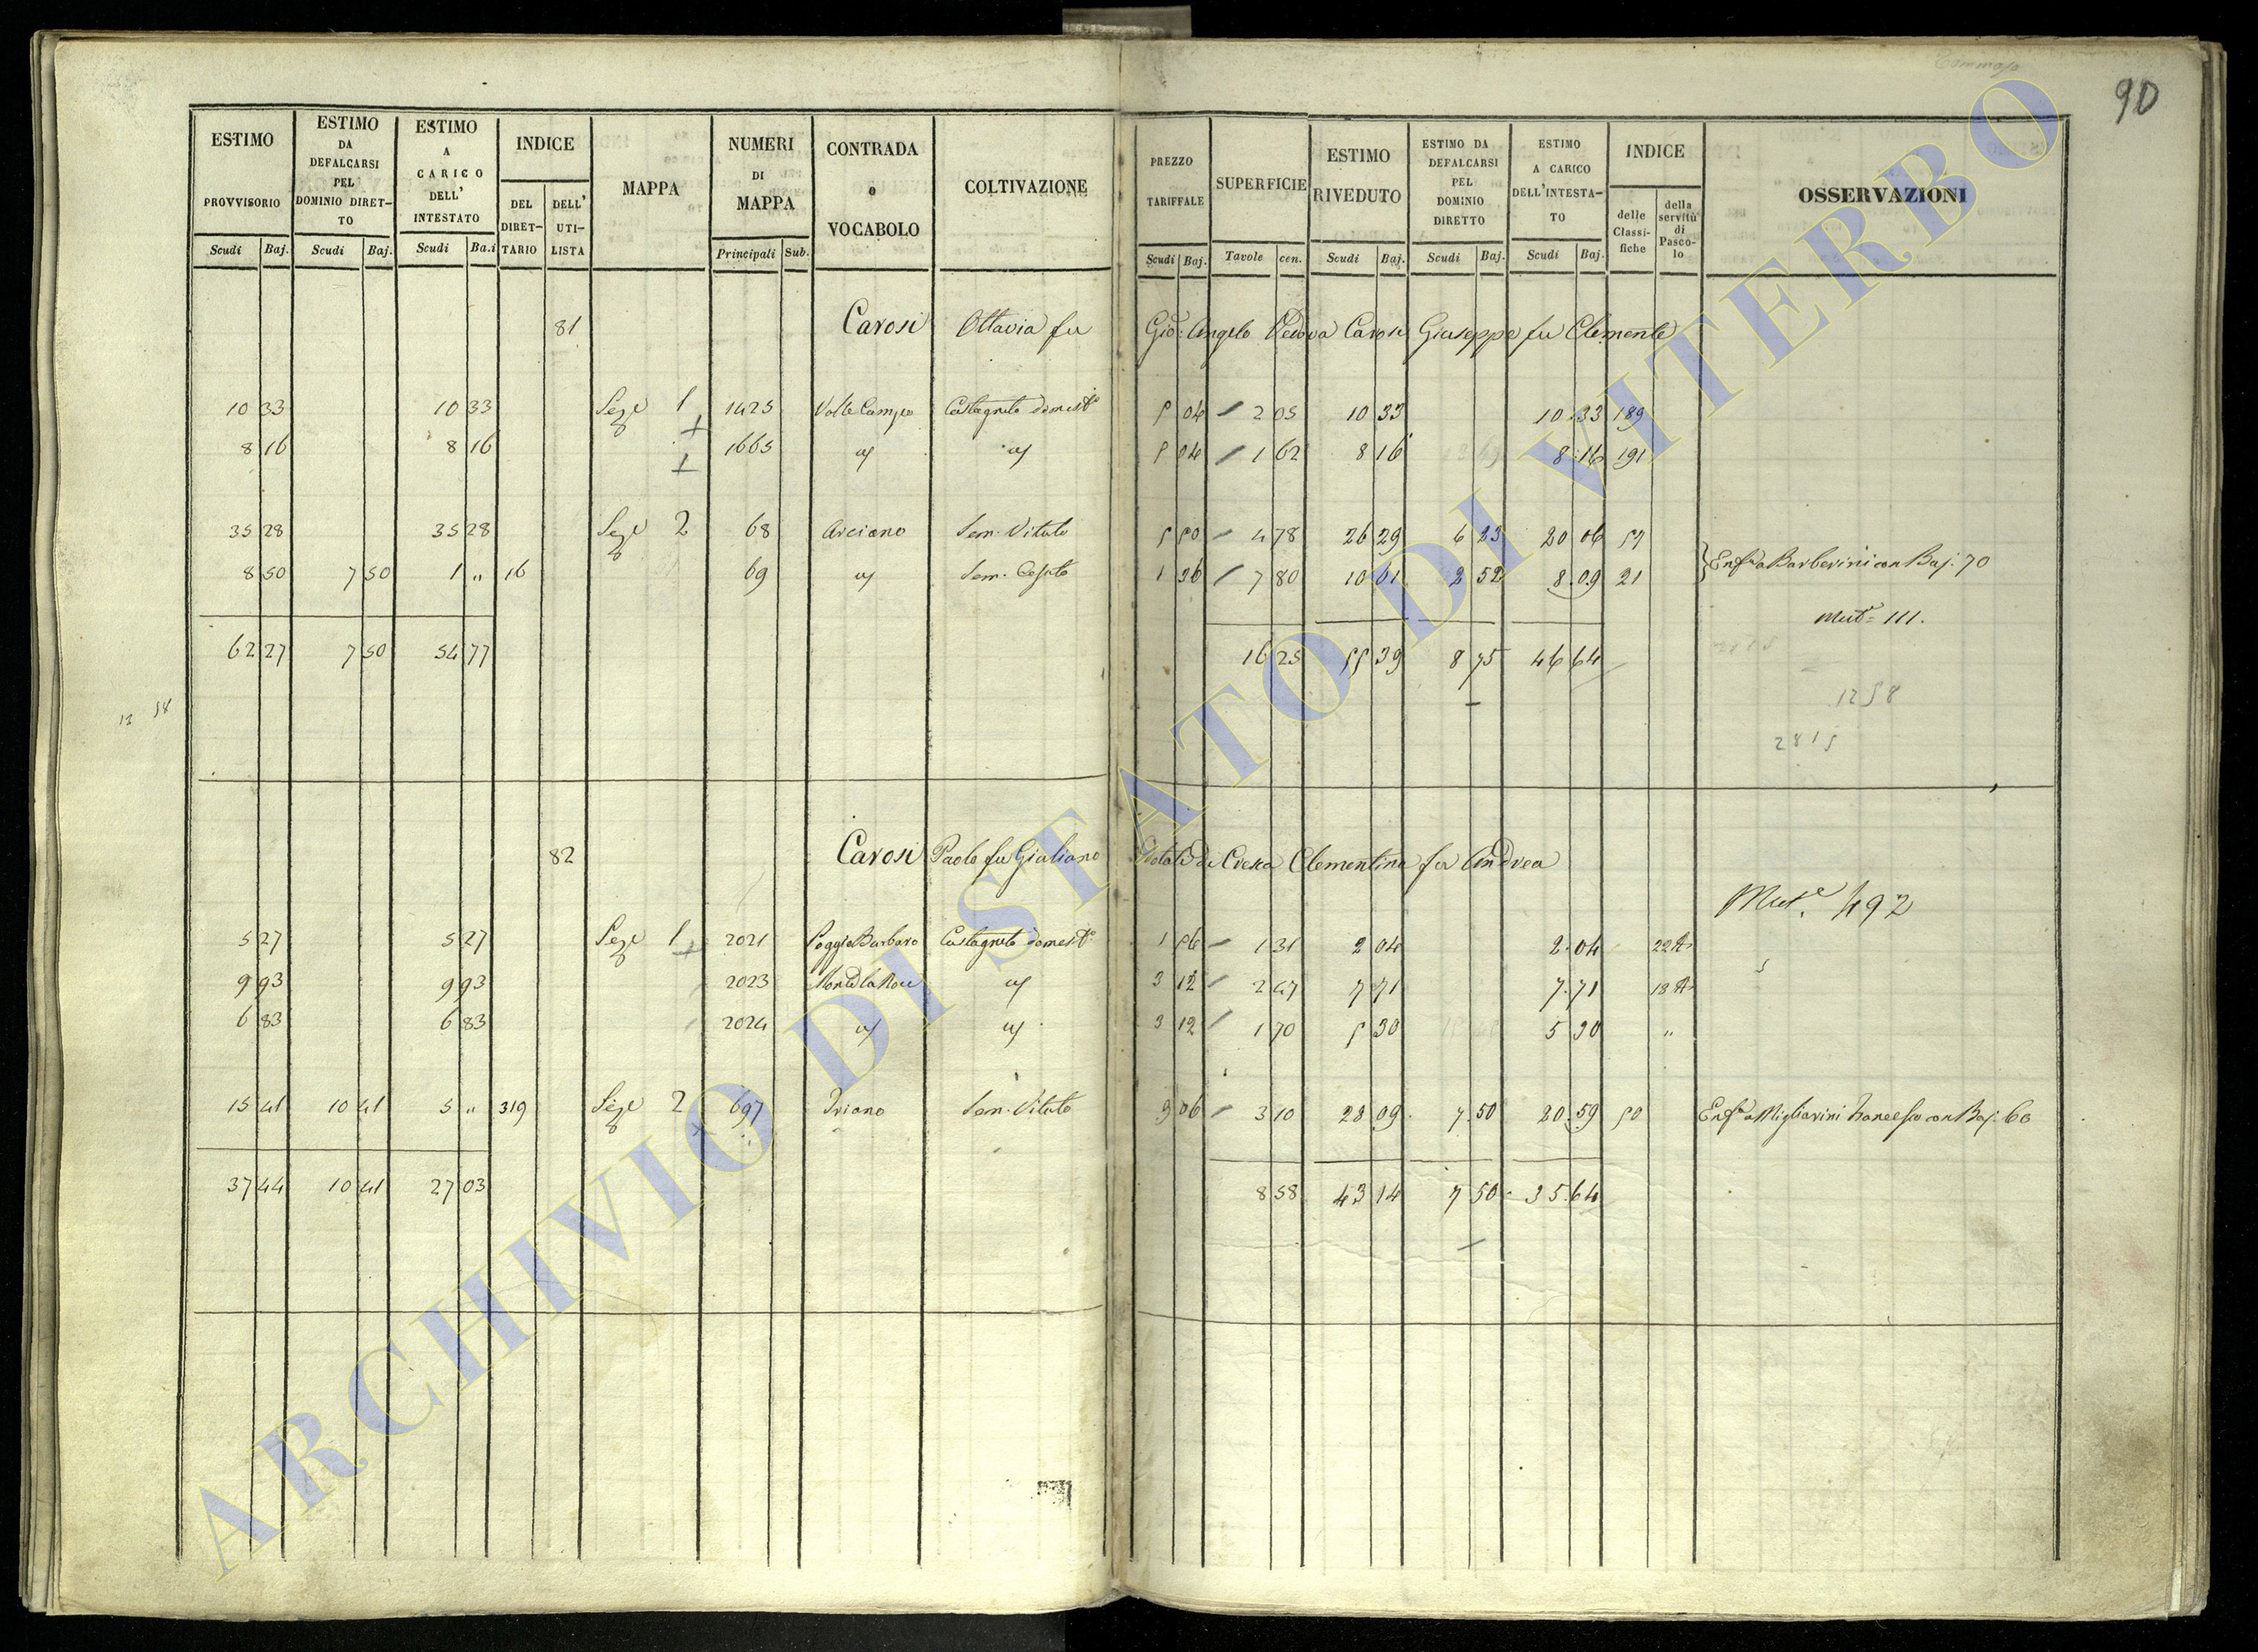 90
ESTIMO PROVVISORIO Scudi Baj.
ESTIMO DA DEFALCARSI PEL DOMINIO DIRETTO Scudi Baj.
ESTIMO A CARICO DELL' INTESTATO Scudi Ba.i
INDICE DEL DIRETTARIO DELL' UTILISTA
MAPPA
NUMERI DI MAPPA Principali Sub.
CONTRADA o VOCABOLO
COLTIVAZIONE
PREZZO TARIFFALE Scudi Baj.
SUPERFICIE Tavole cen.
ESTIMO RIVEDUTO Scudi Baj.
ESTIMO DA DEFALCARSI PEL DOMINIO DIRETTO Scudi Baj.
ESTIMO A CARICO DELL'INTESTATO Scudi Baj.
INDICE delle Classifiche della servitù di Pascolo
OSSERVAZIONI
81 Carosi Ottavia fu Gio: Angelo Vedova Carosi Giuseppe fu Clemente
10 33 10 33 Seze 1 1425 Valle Campo Castagneto domest.o 5 04 2 05 10 33 10 33 189
8 16 8 16 1665 " " 5 04 1 62 8 16 8 16 191
35 28 35 28 Seze 2 68 Arciano Sem. Vitato 5 50 4 78 26 29 6 23 20 06 57
8 50 7 50 1 " 16 69 " Sem. 1 36 7 80 10 61 2 52 8 09 21 Enf.a a Barberini con Baj. 70
Mut.e 111.
62 27 7 50 54 77 16 25 55 39 8 75 46 64
12 58
1258
2815
82 Carosi Paolo fu Giuliano Clementina fu Andrea
Mut.e 492
5 27 5 27 Seze 1 2021 Poggio Barbaro Castagneto domest.o 1 56 1 31 2 04 2 04 22 A
9 93 9 93 2023 " 3 12 2 47 7 71 7 71 18 A
6 83 6 83 2024 " " 3 12 1 70 5 30 5 30 "
15 41 10 41 5 " 319 Seze 2 697 Priano Sem. Vitato 9 06 3 10 28 09 7 50 20 59 50 Enf.a a Migliarini con Baj. 60
37 44 10 41 27 03 8 58 43 14 7 50 35 64
ARCHIVIO DI STATO DI VITERBO